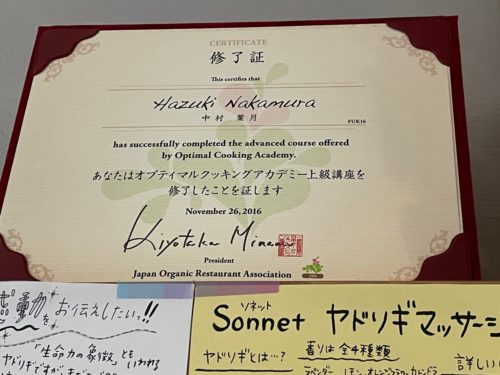 CERTIFICATE
修了証
This certifies that
Hazuki Nakamura
中村 葉月
FUK16
has successfully completed the advanced course offered
by Optimal Cooking Academy.
あなたはオプティマルクッキングアカデミー上級講座を
修了したことを証します
November 26, 2016
Kiyotaka Minami
President
Japan Organic Restaurant Association
お伝えしたいっ!!
「生命力の象徴」とも
いわれる
ソネット
Sonnet ヤドリギマッサージ
ヤドリギとは…?
香りは全4種類
ラベンダー レモン オレンジブラッド カレンドラ
詳しい